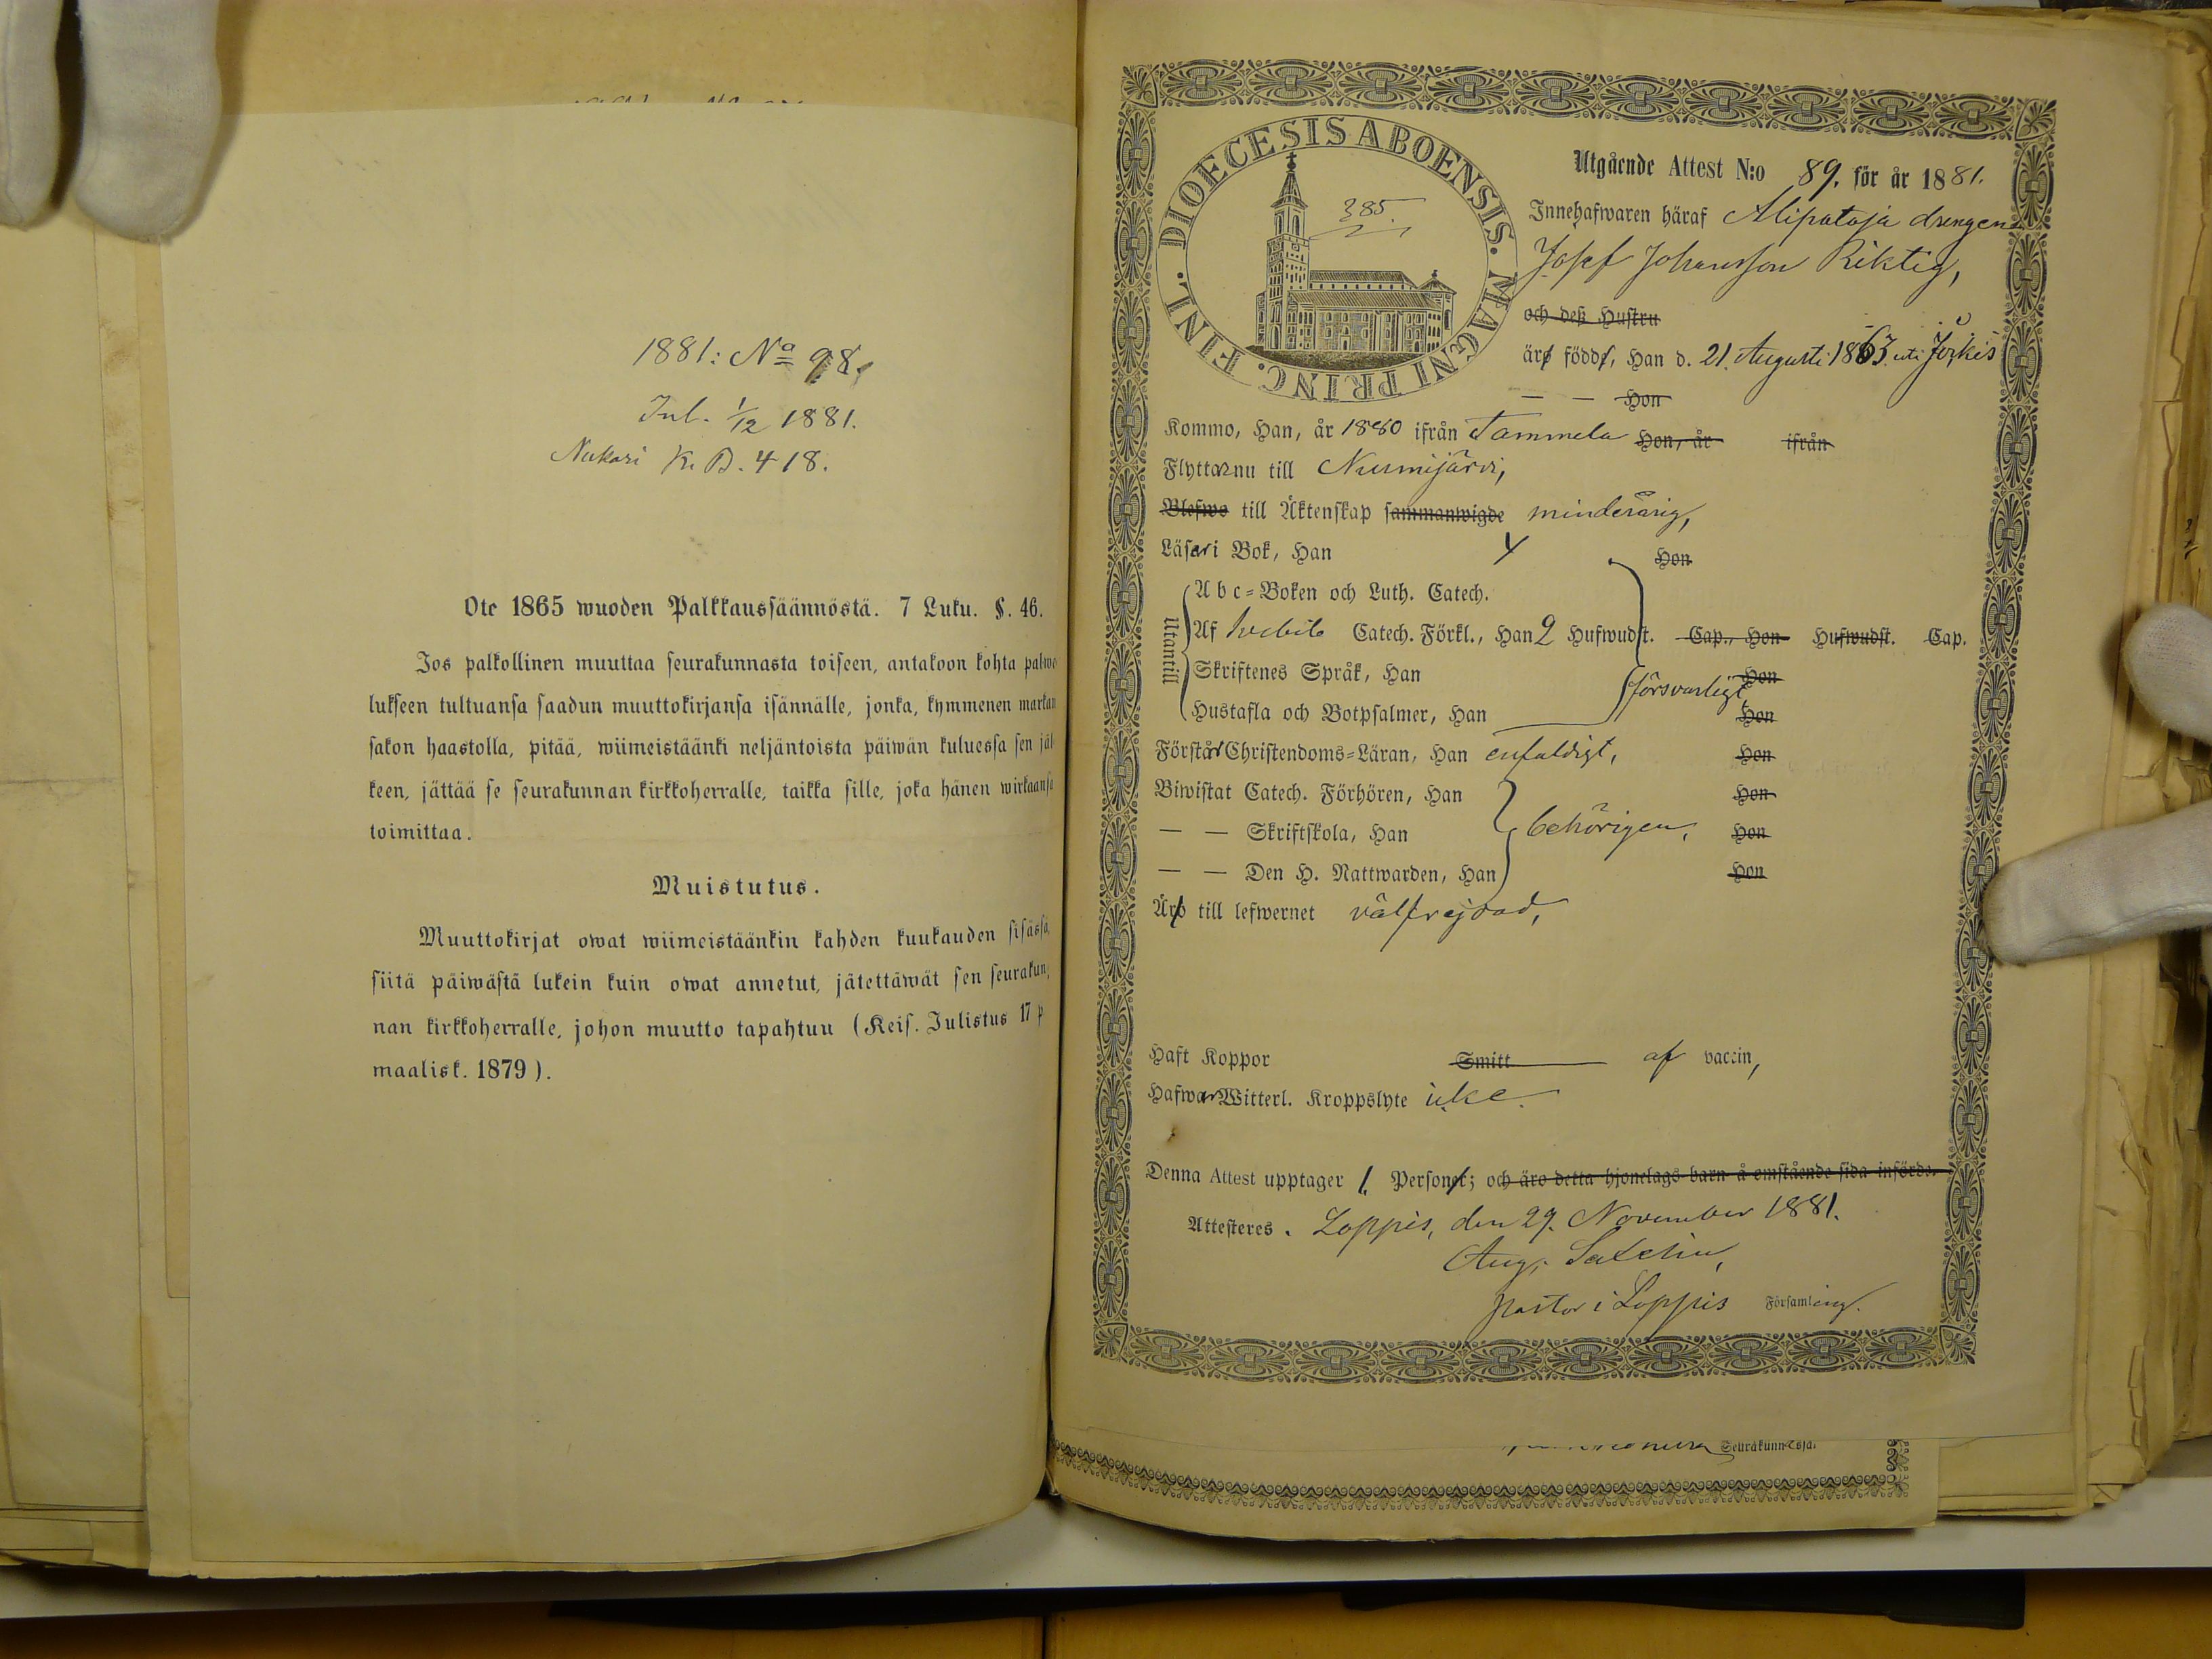 1881: Nº 98.
Inl. 1/12 1881.
Nukari K. B. 418.
Ote 1865 wuoden Palkkaussäännöstä. 7 Luku. §. 46.
Jos palkollinen muuttaa seurakunnasta toiseen, antakoon kohta palwe
lukseen tultuansa saadun muuttokirjansa isännälle, jonka, kymmenen markan
sakon haastolla, pitää, wiimeistäänki neljäntoista päiwän kuluessa sen jäl
keen, jättää se seurakunnan kirkkoherralle, taikka sille, joka hänen wirkaansa
toimittaa.
Muistutus.
Muuttokirjat owat wiimeistäänkin kahden kuukauden sisässä,
siitä päiwästä lukein kuin owat annetut, jätettäwät sen seurakun,
nan kirkkoherralle, johon muutto tapahtuu (Keis. Julistus 17 p
maalisk. 1879).
DIOECESIS ABOENSIS. MAGNI PRINC. FINL.
385.
Utgående Attest N:o 89. för år 1881.
Innehafwaren häraf Alipataja drengen
Josef Johansson Riktig,
och deß Hustru
är född, Han d. 21. Augusti 1863. uti Jockis
— — Hon
Kommo, Han, år 1880 ifrån Tammela Hon, år ifrån
Flyttar nu till Nurmijärvi,
Blefwo till Äktenskap sammanwigde minderårig,
Läser i Bok, Han Hon
Utantill
Abc-Boken och Luth. Catech.
Af Svebil. Catech. Förkl., Han 2 Hufwudst. Cap., Hon Hufwudst. Cap.
Skriftenes Språk, Han försvarligt Hon
Hustafla och Botpsalmer, Han Hon
Förstår Christendoms-Läran, Han enfaldigt, Hon
Biwistat Catech. Förhören, Han Hon
— — Skriftskola, Han behörigen, Hon
— — Den H. Nattwarden, Han Hon
Är till lefwernet välfrejdad,
Haft Koppor Smitt af vaccin,
Hafwer Witterl. Kroppslyte icke.
Denna Attest upptager 1. Person; och äro detta hjonelags barn å omstående sida införde.
Attesteres. Loppis, den 29. November 1881.
Aug.
pastor i Loppis Församling.
Seurakunnassa.